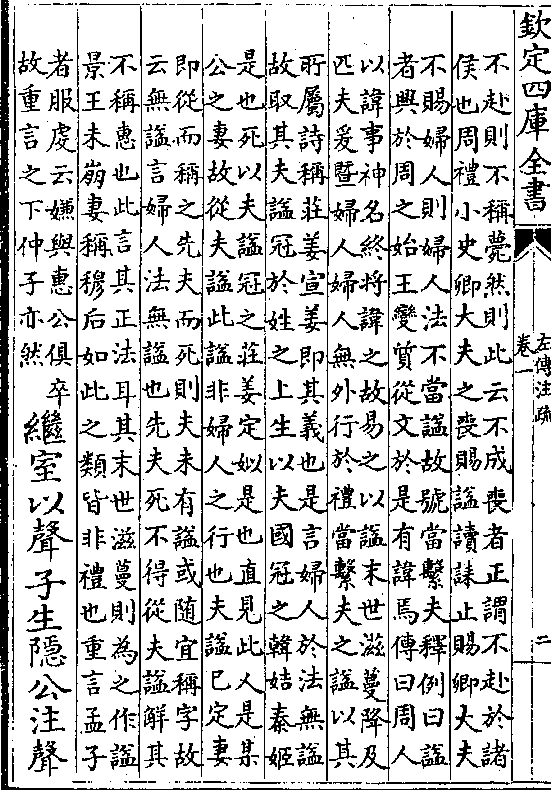 欽定四庫全書
左傳注疏
卷一
二
不赴則不稱薨然則此云不成喪者正謂不赴於諸
侯也周禮小史卿大夫之喪賜諡讀誄止賜卿大夫
不賜婦人則婦人法不當諡故號當繫夫釋例曰諡
者興於周之始王變質從文於是有諱焉傳曰周人
以諱事神名終將諱之故易之以諡末世滋蔓降及
匹夫爰暨婦人婦人無外行於禮當繫夫之諡以其
所屬詩稱莊姜宣姜即其義也是言婦人於法無諡
故取其夫諡冠於姓之上生以夫國冠之韓姞秦姬
是也死以夫諡冠之莊姜定姒是也直見此人是某
公之妻故從夫諡此諡非婦人之行也夫諡已定妻
即從而稱之先夫而死則夫未有諡或隨宜稱字故
云無諡言婦人法無諡也先夫死不得從夫諡解其
不稱惠也此言其正法耳其末世滋蔓則為之作諡
景王未崩妻稱穆后如此之類皆非禮也重言孟子
者服虔云嫌與惠公俱卒
故重言之下仲子亦然
繼室以聲子生隱公注聲